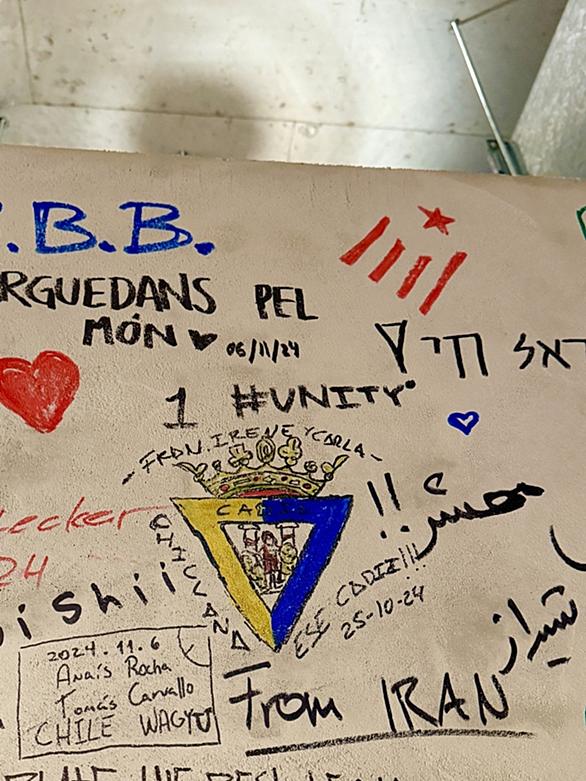 .B.B.
RGUEDANS PEL
MÓN ♥ 06/11/24
ראל חי
1 #UNITY
-FRDN. IRENE Y CARLA-
CADIZ
CHICLANA
ESE CADIZ!!!
25-10-24
ecker
24
i Shii
2024.11.6
Anaís Rocha
Tomás Carvallo
CHILE WAGYU
شیراز
From IRAN